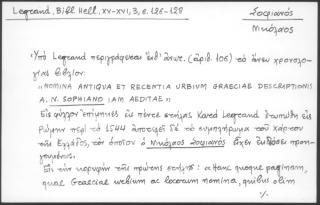 Legrand, Bibl. Hell., XV-XVI, 3, σ. 126-128
Σοφιανός
Νικόλαος
Ὑπὸ Legrand περιγράφεται (ἀριθ. 106) τὸ ἄνευ χρονολο-
γίας βιβλίον:
"NOMINA ANTIQUA ET RECENTIA URBIUM GRAECIAE DESCRIPTIONIS
A. N. SOPHIANO IAM AEDITAE"
Εἰς φύλλον ἐπίμηκες εἰς πέντε στήλας. Κατὰ Legrand ἐτυπώθη εἰς
Ρώμην περὶ τὸ 1544 ἀποτελεῖ δὲ τὸ συμπλήρωμα τοῦ χάρτου
τῆς Ἑλλάδος, τὸν ὁποῖον ὁ Νικόλαος Σοφιανὸς εἶχεν ἐκδώσει προη-
γουμένως.
Εἰς τὴν κορυφὴν τῆς πρώτης στήλης: «Hanc quoque paginam,
quae Graeciae urbium ac locorum nomina, quibus olim
./.